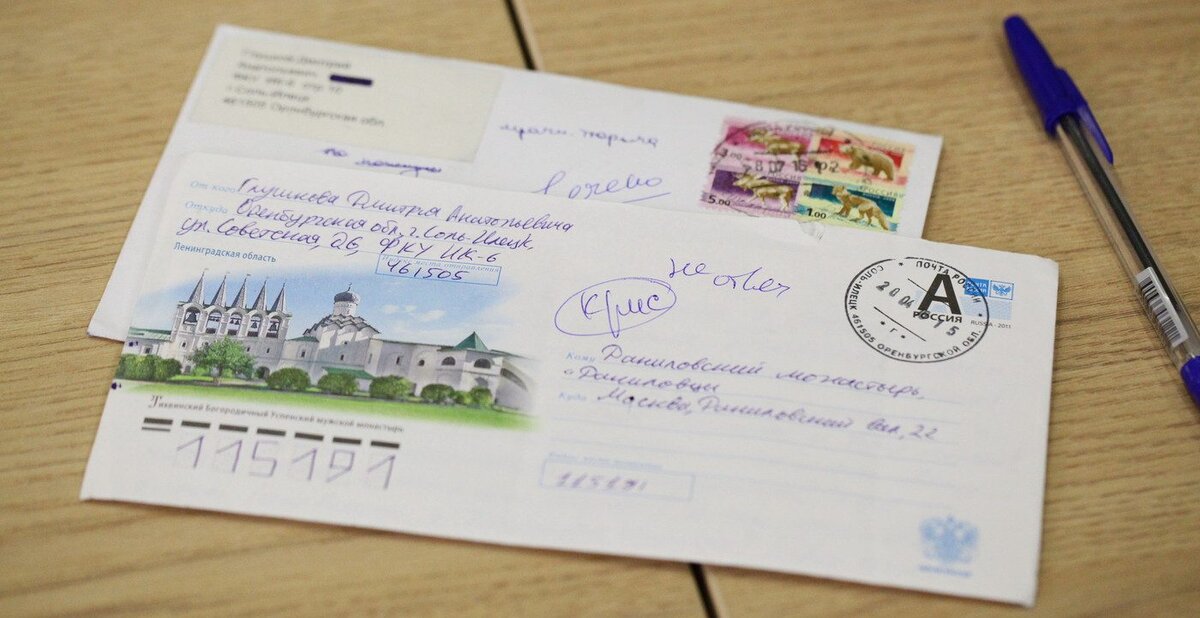 Анатольевич
г. Соль-Илецк
Оренбургская обл.
3.00
5.00
РОССИЯ
1.00
От кого Глушкова Дмитрия Анатольевича
Откуда Оренбургская обл., г. Соль-Илецк,
ул. Советская, 26, ФКУ ИК-6
461505
Ленинградская область
Тихвинский Богородичный Успенский мужской монастырь
115191
не отвеч
крис
ПОЧТА РОССИИ
А
РОССИЯ
СОЛЬ-ИЛЕЦК 461505 ОРЕНБУРГСКОЙ ОБЛ.
RUSSIA - 2013
Кому Даниловский монастырь,
"Даниловцы
Куда Москва, Даниловский вал, 22
115191